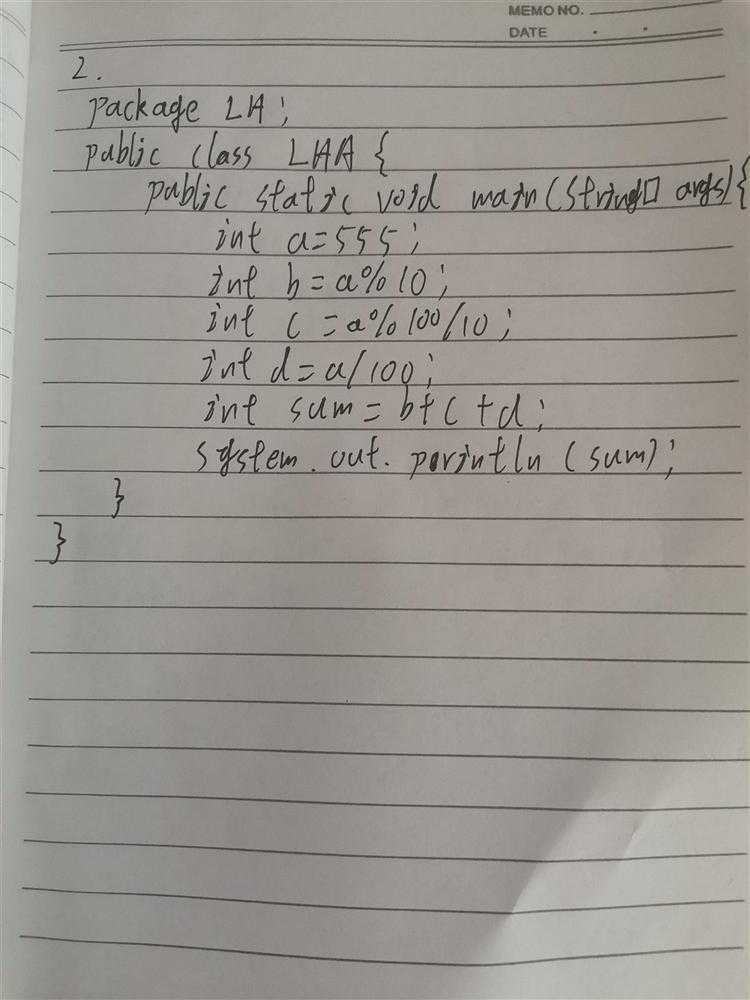 MEMO NO.
DATE . .
2.
package LA;
public class LAA {
public static void main(String[] args){
int a=555;
int b=a%10;
int c=a%100/10;
int d=a/100;
int sum=b+c+d;
system.out.println(sum);
}
}